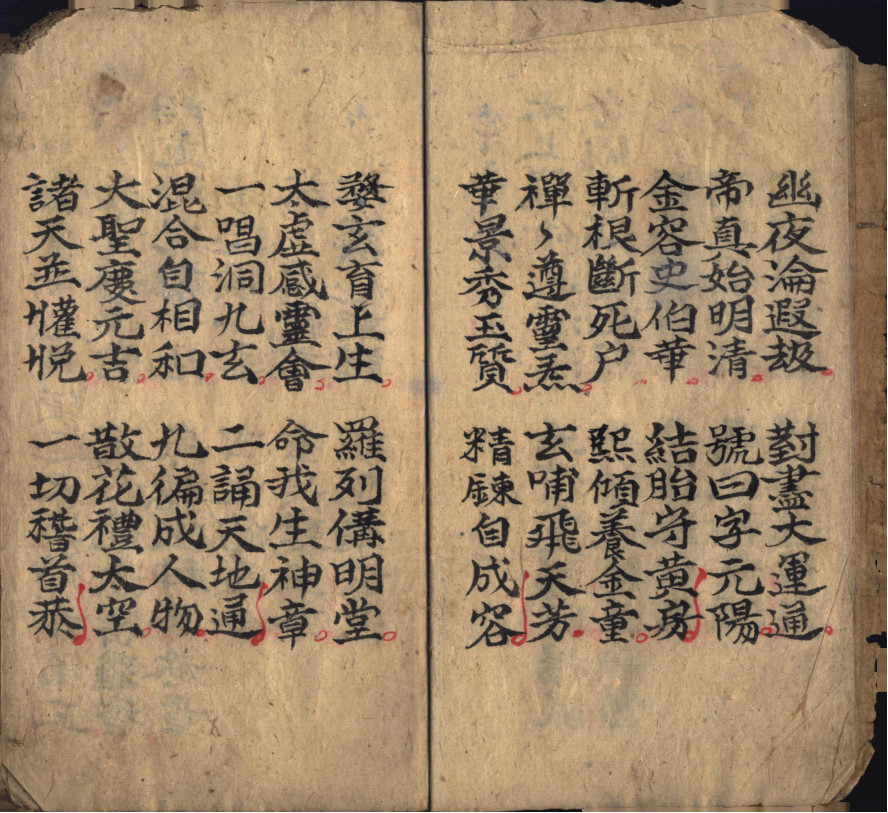 幽夜淪遐劫。對盡大運通。
帝真始明清。號曰字元陽。
金容史伯華。結胎守黃房。
斬根斷死户。熙傾養金童。
禪〻遵靈炁。玄哺飛天芳。
華景秀玉質。精鍊自成容。
嬰玄育上生。羅列備明堂。
太虛感靈會。命我生神章。
一唱洞九玄。二誦天地通。
混合自相和。九徧成人物。
大聖慶元吉。散花禮太空。
諸天並懽悅。一切稽首恭